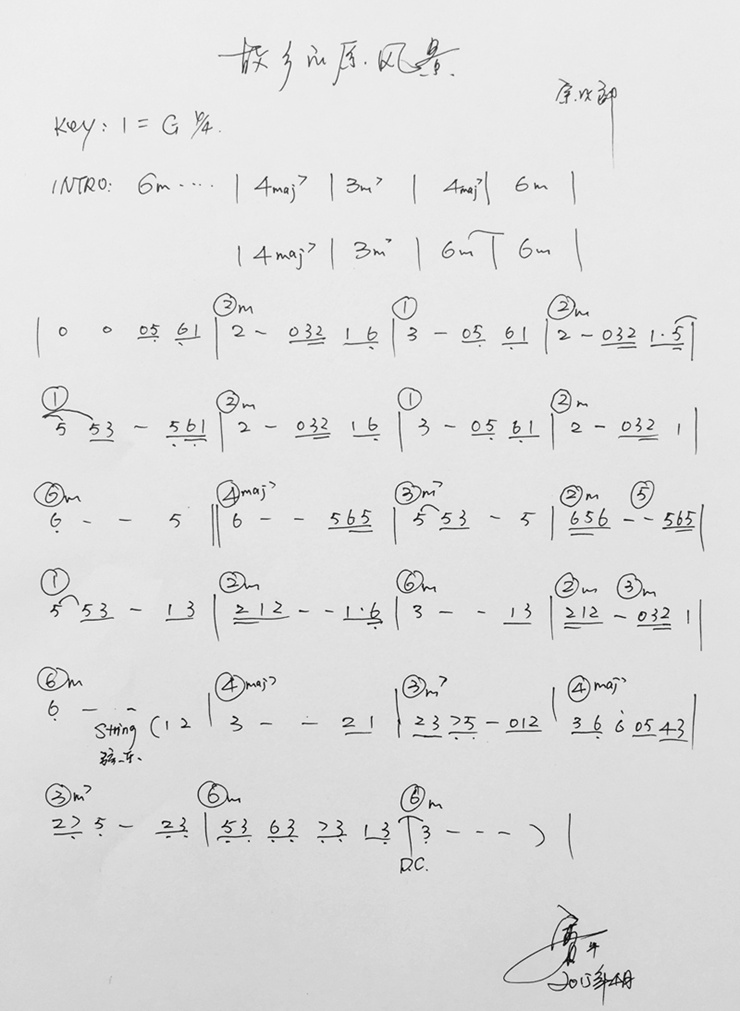 故乡的原风景
宗次郎
Key: 1 = G 4/4.
INTRO: 6m .... | 4maj7 | 3m7 | 4maj7 | 6m |
| 4maj7 | 3m7 | 6m | 6m |
②m ① ②m
| 0 0 05 61 | 2 - 032 16 | 3 - 05 61 | 2 - 032 1·5 |
① ②m ① ②m
5 53 - 561 | 2 - 032 16 | 3 - 05 61 | 2 - 032 1 |
⑥m ④maj7 ③m7 ②m ⑤
6 - - 5 || 6 - - 565 | 5 53 - 5 | 656 - - 565 |
① ②m ⑥m ②m ③m
5 53 - 13 | 212 - - 1·6 | 3 - - 13 | 212 - 032 1 |
⑥m ④maj7 ③m7 ④maj7
6 - - - (12 | 3 - - 21 | 23 75 - 012 | 36 6 05 43 |
String
弦乐.
③m7 ⑥m ⑥m
27 5 - 23 | 53 63 73 13 | 3 - - - ) |
D.C.
2015年4月